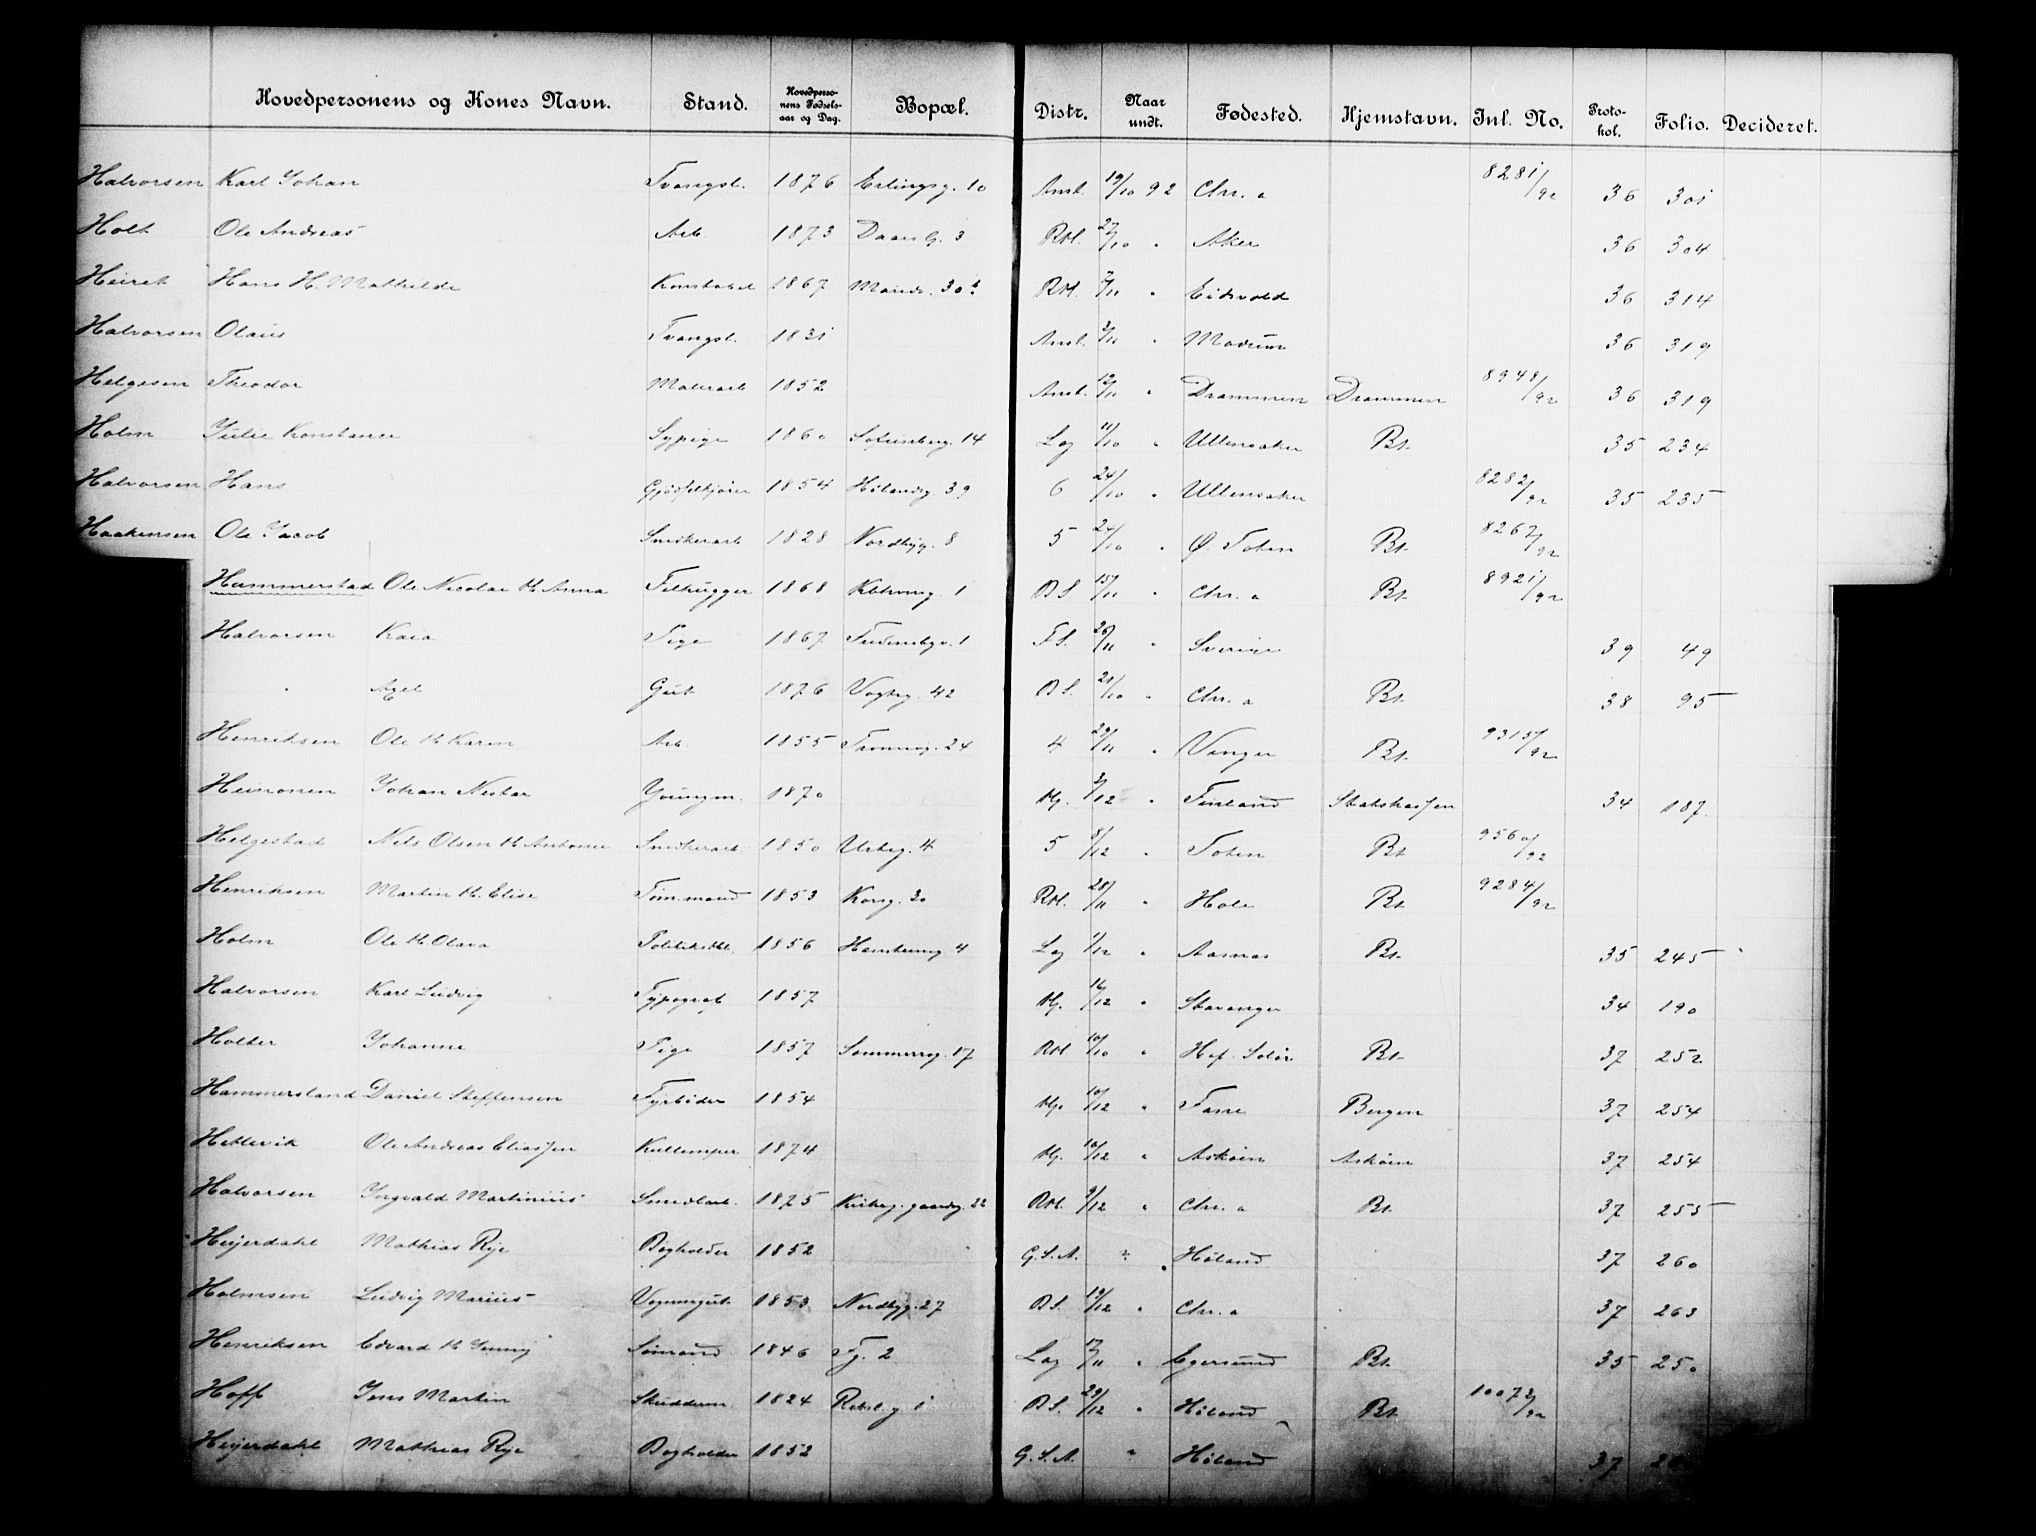 Hovedpersonens og Kones Navn. Stand. Hovedperso-nens Fødsels-aar og Dag. Bopæl. Distr. Naar undt. Fødested. Hjemstavn. Inl. No. Proto-kol. Folio. Decideret.
Halvorsen Karl Johan Tvangsl. 1876 Erlingsg. 10 Anst. 19/10 92 Chr. a 8281/92 36 301
Holt Ole Andreas Arb. 1873 Daaes G. 3 Rst. 27/10 " Aker 36 304
Hans H. Mathilde Konstabel 1867 30 Rst. 7/11 " Eidsvold 36 314
Halvorsen Olaus Tvangsl. 1831 Anst. 3/11 " Modum 36 319
Helgesen Theodor Malerarb 1852 Anst. 12/11 " Drammen Drammen 8948/92 36 319
Holm Julie Konstance Sypige 1860 Sofienberg. 14 Lag 11/10 " Ullensaker Bt. 35 234
Halvorsen Hans Gjødselkjører 1854 Hølandsg 39 6 24/10 " Ullensaker 8282/92 35 235
Haakensen Ole Jacob Snedkerarb 1828 Nordbyg. 8 5 24/10 " Ø. Toten Bt. 8267/92
Hammerstad Ole Nicolai H. Anna Filhugger 1868 1 B S. 15/11 " Chr. a Bt. 8921/92
Halvorsen Kaia Pige 1867 1 F S. 26/11 " Sverige 39 49
" Axel Gut 1876 Vogtsg. 42 B S. 21/10 " Chr. a Bt. 38 95
Henriksen Ole H. Karen Arb. 1855 Tromsøg. 24 4 29/11 " Vinger Bt. 9315/92
Heinonen Johan Nestor Youngm. 1870 Hj. 3/12 " Finland Statskassen 34 187
Helgestad Nils Olsen H. Antonie Snedkerarb. 1850 Urteg. 4 5 8/12 " Toten Bt 9560/92
Henriksen Martin H. Elise Tømmermand 1853 Korsg. 30 Rst. 28/11 " Hole Bt 9284/92
Holm Ole H. Olava Politikstbl. 1856 4 Lag 1/12 " Aasnes Bt. 35 245
Halvorsen Karl Ludvig Typograf 1857 Hj. 16/12 " Stavanger 34 190
Holter Johanne Pige 1857 Sommerrog. 17 Rst. 10/10 " Hof. Solør Bt. 37 252
Hammersland Daniel Steffensen Fyrbøder 1854 Hj. 10/12 " Fane Bergen 37 254
Hetlevik Ole Andreas Eliassen Kullemper 1874 Hj. 10/12 " Askøen Askøen 37 254
Halvorsen Ingvald Martinius Smedarb. 1875 Kirkeg. gaardsg. 22 Rst. 9/12 " Chr. a Bt. 37 255
Heijerdahl Mathias Rye Bogholder 1852 G. S. A. " Høland 37 260
Holmsen Ludvig Marius Vognmgut. 1853 Nordbyg. 27 B S. 19/12 " Chr. a 37 263
Henriksen Edvard H. Jenny Sømand 1846 Fj. 2 Lag 17/11 " Egersund Bt. 35 250
Hoff Jens Martin Skredderm. 1824 1 B S. 29/12 " Høland Bt 10073/92
Heijerdahl Mathias Rye Bogholder 1852 G. S. A. " Høland 37